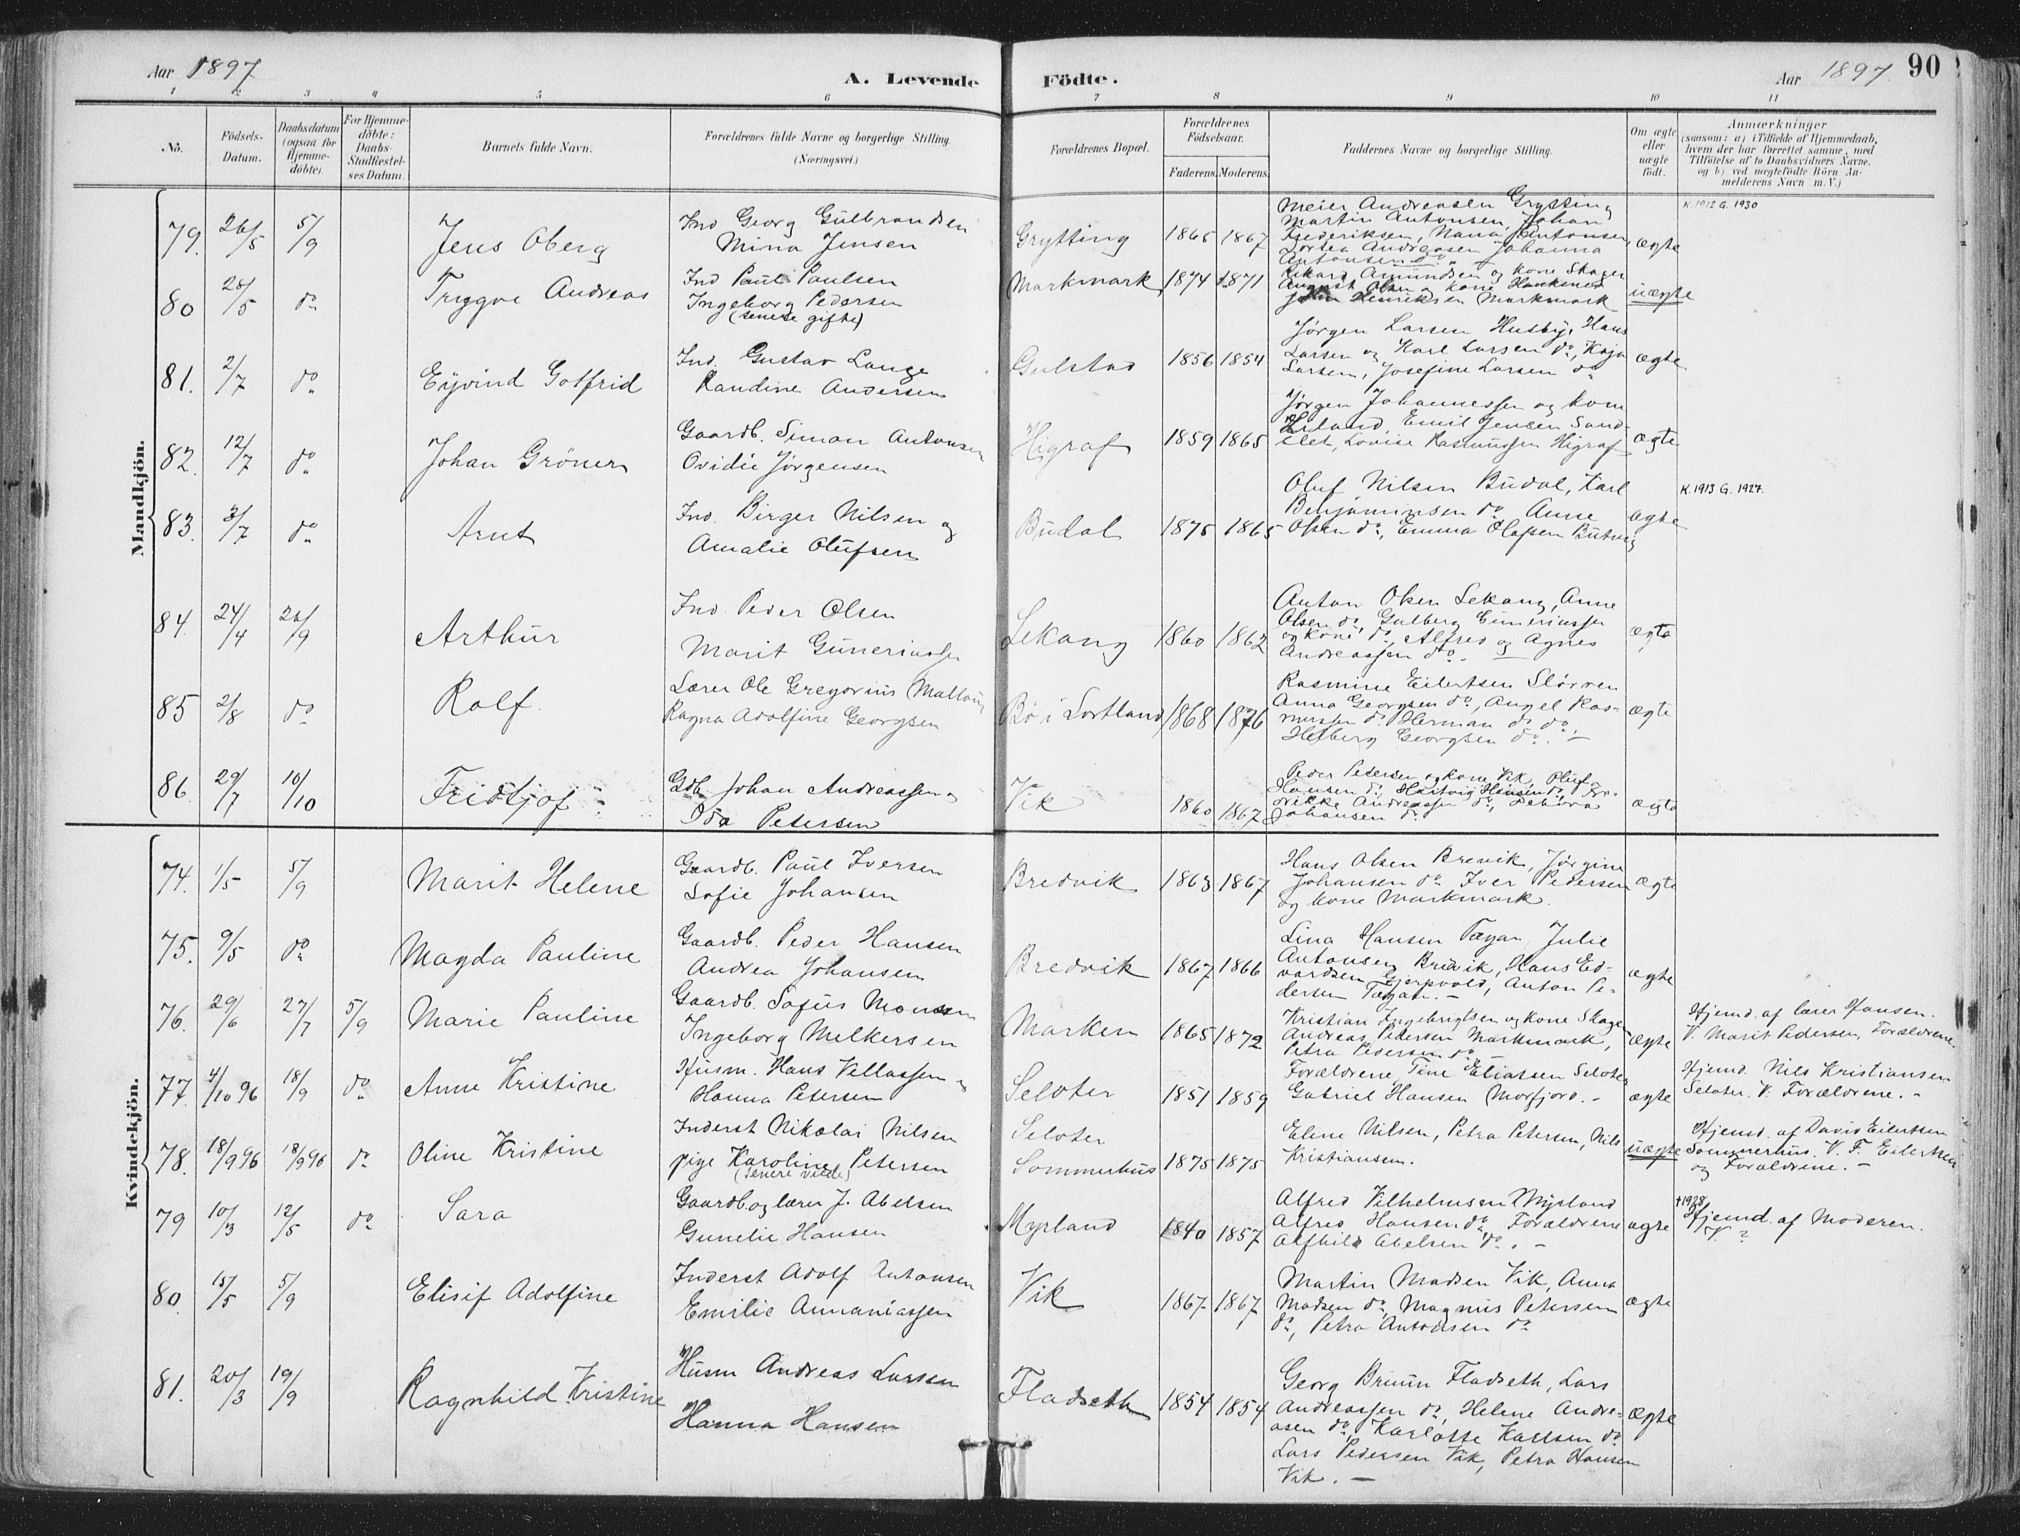 Aar 1897
A. Levende
Födte.
Aar 1897 90
1 2 3 4 5 6 7 8 9 10 11
No.
Födsels-
Datum.
Daabsdatum
(ogsaa for
Hjemme-
döbte).
For Hjemme-
döbte:
Daabs-
Stadfæstel-
ses Datum.
Barnets fulde Navn.
Forældrenes fulde Navne og borgerlige Stilling.
(Næringsvei.)
Forældrenes Bopæl.
Forældrenes
Födselsaar.
Faderens. Moderens.
Faddernes Navne og borgerlige Stilling.
Om ægte
eller
uægte
födt.
Anmærkninger
(saasom: a) i Tilfælde af Hjemmedaab,
hvem der har forrettet samme, med
Tilföielse af to Daabsvidners Navne,
og b) ved uægtefödte Börn An-
melderens Navn m. V.)
Mandkjön.
79. 26/5 5/9 Jens Oberg
Ind Georg Gulbrandsen
Mina Jensen
Grytting 1865 1867
Meier Andreasen Grytting
Martin Antonsen, Johan
Frederiksen, Nana Antonsen,
Andreasen Johanna
Antonsen do
ægte
K. 1912 G. 1930
80 28/5 do Tryggve Andreas
Ind Paul Paulsen
Ingeborg Pedersen
(senere gifte)
Markmark 1874 1871
Rikard Amundsen og kone Skager
August Olsen og kone
Henriksen Markmark
uægte
81. 2/7 do Eyvind Gotfrid
Ind. Gustav Lange
Randine Andersen
Gulstad 1856 1854
Jørgen Larsen Husby, Hans
Larsen og Karl Larsen do, Kaja
Larsen, Josefine Larsen do
ægte
82. 12/7 do Johan Gröner
Gaardb. Simon Antonsen
Ovidie Jørgensen
Higraf 1859 1865
Jørgen Johannessen og kone
Emil Jensen Sand-
slet, Lovise Rasmussen Higraf
ægte
83. 3/7 do Arnt
Ind. Birger Nilsen og
Amalie Olufsen
Budal 1875 1865
Oluf Nilsen Budal, Karl
Benjaminsen do Anne
Olsen do, Emma Olafsen
ægte
K. 1913 G. 1927.
84. 24/4 26/9 Arthur
Ind. Peder Olsen
Marit Guneriussen
Lekang 1860 1862
Anton Olsen Lekang, Anne
Olsen do, Gulberg Guneriussen
og kone do, Alfred og Agnes
Andreassen do
ægte
85 2/8 do Rolf.
Lærer Ole Gregorius
Ragna Adolfine Georgsen
Bø i Sortland 1868 1876
Rasmine Eilertsen Slörren
Anna Georgsen do, Angel Ras-
mussen do Herman do do,
Georgsen do. -
ægte
86 29/7 10/10 Fridtjof
Gdb. Johan Andreassen
Oda Petersen
Vik 1860 1867
Peder Petersen og kone Vik, Oluf
Hansen do, Hartvig Hansen do, Fre-
drikke Andreassen do,
Johansen do
ægte
Kvindekjön.
74. 1/5 5/9 Marit Helene
Gaardb. Paul Iversen
Sofie Johansen
Bredvik 1863 1867
Hans Olsen Brevik, Jørgine
Johansen do Iver Pedersen
og kone Markmark.
ægte
75. 9/5 do Magda Pauline
Gaardb. Peder Hansen
Andrea Johansen
Bredvik 1867 1866
Lina Hansen Julie
Antonsen Bredvik, Hans Ed-
vardsen Anton Pe-
dersen -
ægte
76. 29/6 27/7 5/9 Marie Pauline
Gaardb. Sofus Monsen
Ingeborg Melkersen
Marken 1865 1872
Kristian Ingebrigtsen og kone Skager
Andreas Pedersen Markmark,
Petra Pedersen do
ægte
Hjemd. af lærer Hansen.
V. Marit Pedersen, Forældrene.
77. 4/10 96 18/9 do Anne Kristine
Husm. Hans Villassen
Hanna Petersen
Seloter 1851 1859
Forældrene, Tine Eliassen Seloter
Gabriel Hansen Morfjord. -
ægte
Hjemd. Nils Kristiansen
Seloter. V. Forældrene. -
78. 18/9 96 18/9 96 do Oline Kristine
Inderst Nikolai Nilsen
pige Karoline Petersen
Seloter
Sommerhus 1875 1875
Eline Nilsen, Petra Petersen, Nils
Kristiansen.
uægte
Hjemd. af David Eilertsen
Sommerhus. V. F. Eilertsen
og Forældrene. -
79 10/3 12/5 do Sara
Gaardb. og lærer J. Abelsen
Gunelie Hansen
Myrland 1840 1857
Alfred Vilhelmsen Myrland
Alfred Hansen do Forældrene
Alfhild Abelsen do. -
ægte
†1928
Hjemd. af Moderen.
V ?
80. 15/5 5/9 Elisif Adolfine
Inderst Adolf Antonsen
Emilie Annaniassen
Vik 1867 1867
Martin Madsen Vik, Anna
Madsen do, Magnus Petersen
do, Petra Antonsen do
ægte
81. 20/3 19/9 Ragnhild Kristine
Husm Andreas Larsen
Hanna Hansen
Fladseth 1854 1854
Georg Bruun Fladseth, Lars
Andreassen do, Helene Andre-
asen do, Karlotte Karlsen do
Lars Pedersen Vik, Petra Hansen
Vik. -
ægte